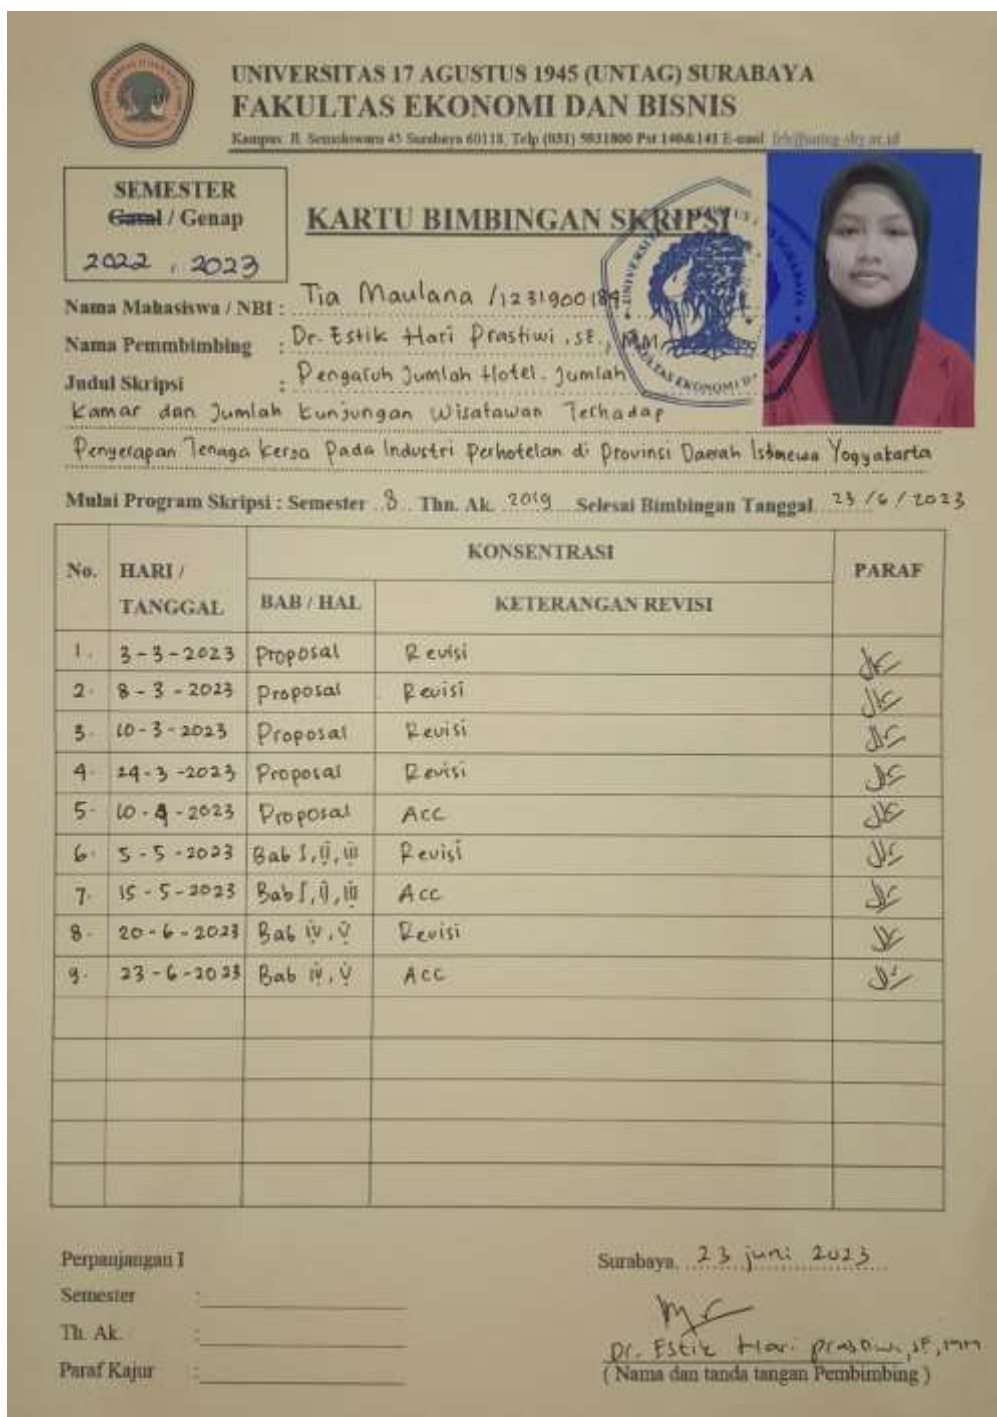 UNIVERSITAS 17 AGUSTUS 1945 (UNTAG) SURABAYA
FAKULTAS EKONOMI DAN BISNIS
Kampus: Jl. Semolowaru 45 Surabaya 60118, Telp (031) 5931800 Pst 140&141 E-mail
SEMESTER
Gasal / Genap
2022 , 2023
KARTU BIMBINGAN SKRIPSI
Nama Mahasiswa / NBI : Tia Maulana /1231900189
Nama Pemmbimbing : Dr. Estik Hari Prastiwi, SE., MM.
Judul Skripsi : Pengaruh Jumlah Hotel. Jumlah
Kamar dan Jumlah Kunjungan Wisatawan Terhadap
Penyerapan Tenaga Kerja Pada Industri Perhotelan di Provinsi Daerah Istimewa Yogyakarta
Mulai Program Skripsi : Semester 8 Thn. Ak. 2019 Selesai Bimbingan Tanggal 23 / 6 / 2023
No. HARI / TANGGAL KONSENTRASI PARAF
BAB / HAL KETERANGAN REVISI
1. 3-3-2023 Proposal Revisi
2. 8-3-2023 Proposal Revisi
3. 10-3-2023 Proposal Revisi
4. 24-3-2023 Proposal Revisi
5. 10-4-2023 Proposal Acc
6. 5-5-2023 Bab I, II, III Revisi
7. 15-5-2023 Bab I, II, III Acc
8. 20-6-2023 Bab IV, V Revisi
9. 23-6-2023 Bab IV, V Acc
Perpanjangan I
Semester :
Th. Ak. :
Paraf Kajur :
Surabaya, 23 juni 2023
Dr. Estik Hari Prastiwi, SE, MM
( Nama dan tanda tangan Pembimbing )